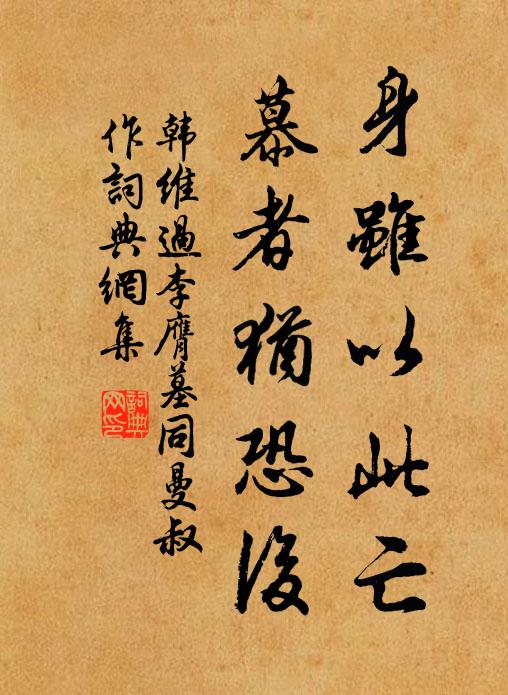 身雖以此亡
慕者猶恐後
韩維過李膺墓同曼叔
作詞典網集
詞典
网印